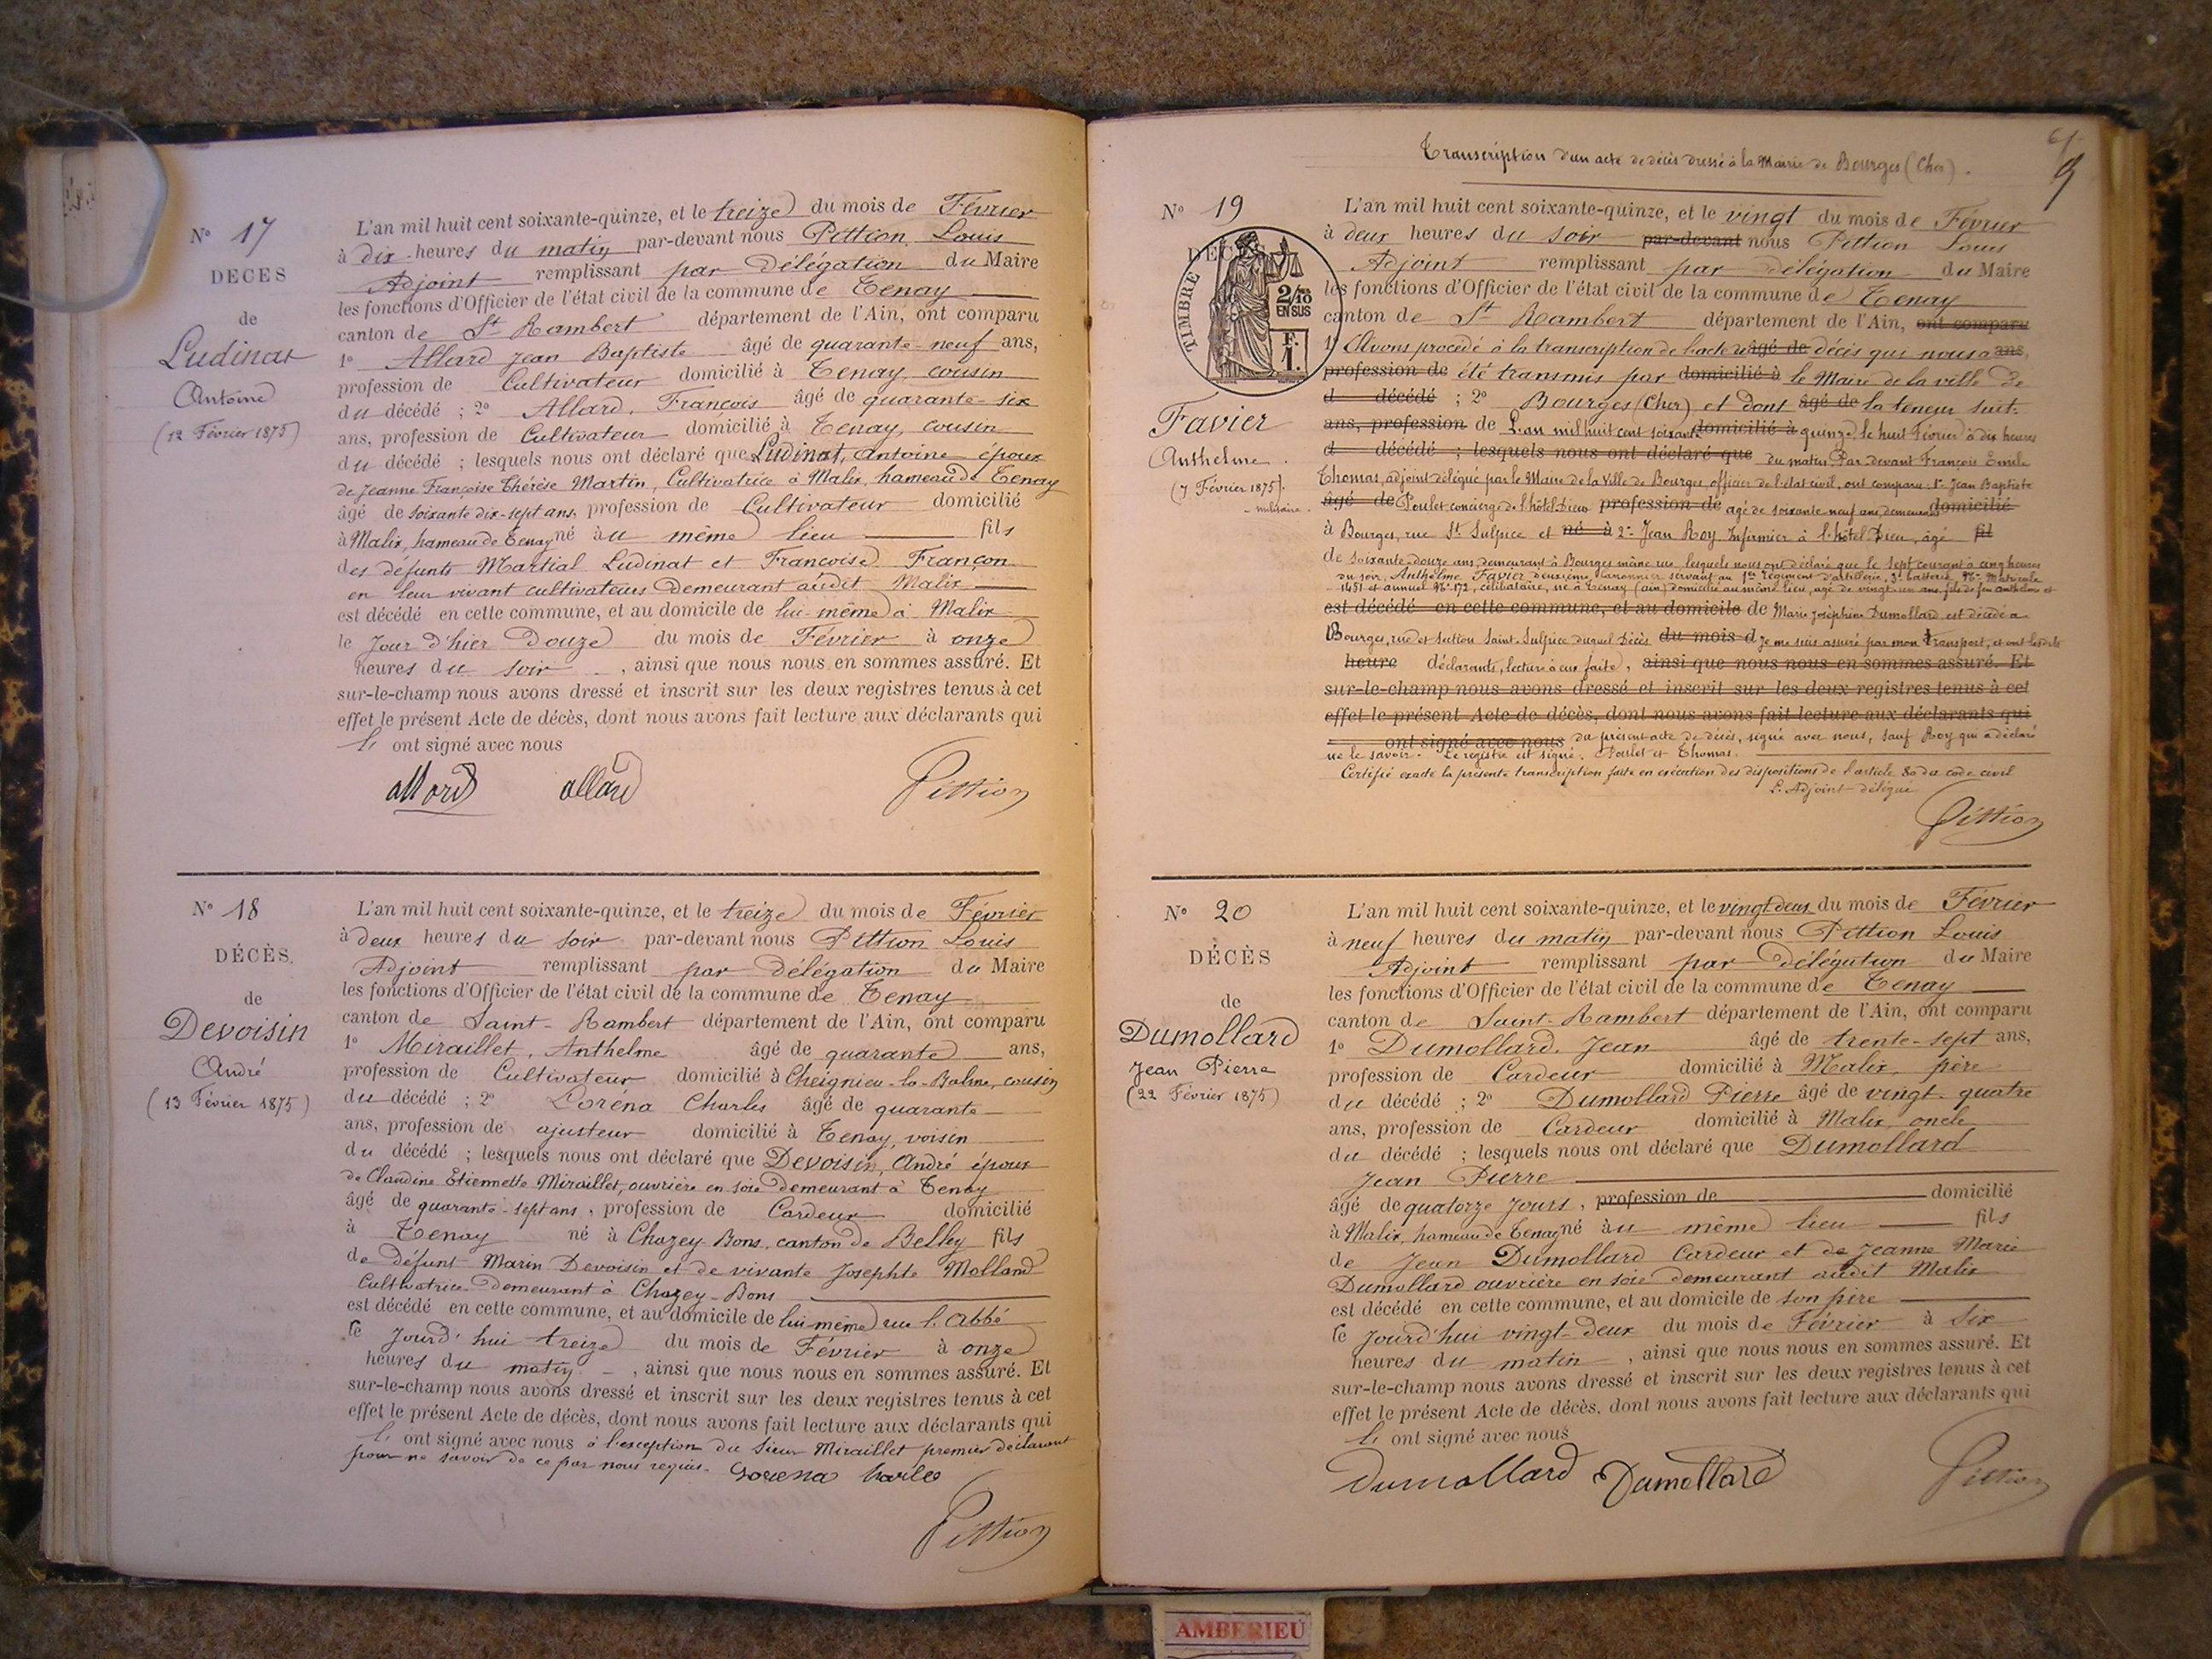 N° 17
DECES
de
Ludinat
Antoine
(12 Février 1875)
L'an mil huit cent soixante-quinze, et le treize du mois de Février
à dix heures du matin par-devant nous Pittion Louis
Adjoint remplissant par Délégation du Maire
les fonctions d'Officier de l'état civil de la commune de Tenay
canton de St Rambert département de l'Ain, ont comparu
1° Allard Jean Baptiste âgé de quarante-neuf ans,
profession de Cultivateur domicilié à Tenay, cousin
du décédé ; 2° Allard, François âgé de quarante-six
ans, profession de Cultivateur domicilié à Tenay, cousin
du décédé ; lesquels nous ont déclaré que Ludinat, Antoine époux
de Jeanne Françoise Thérèse Martin, Cultivatrice à Malix, hameau de Tenay
âgé de soixante dix-sept ans, profession de Cultivateur domicilié
à Malix, hameau de Tenay né au même lieu fils
des défunts Martial Ludinat et Françoise Françon
en leur vivant cultivateurs Demeurant audit Malix
est décédé en cette commune, et au domicile de lui-même à Malix
le Jour d'hier Douze du mois de Février à onze
heures du soir , ainsi que nous nous en sommes assuré. Et
sur-le-champ nous avons dressé et inscrit sur les deux registres tenus à cet
effet le présent Acte de décès, dont nous avons fait lecture aux déclarants qui
ont signé avec nous
allard allard Pittion
N° 18
DÉCÈS.
de
Devoisin
André
(13 Février 1875)
L'an mil huit cent soixante-quinze, et le treize du mois de Février
à deux heures du soir par-devant nous Pittion Louis
Adjoint remplissant par délégation du Maire
les fonctions d'Officier de l'état civil de la commune de Tenay
canton de Saint-Rambert département de l'Ain, ont comparu
1° Miraillet, Anthelme âgé de quarante ans,
profession de Cultivateur domicilié à Cheignieu-la-Balme, cousin
du décédé ; 2° Lorena Charles âgé de quarante
ans, profession de ajusteur domicilié à Tenay, voisin
du décédé ; lesquels nous ont déclaré que Devoisin, André époux
de Claudine Etiennette Miraillet, ouvrière en soie Demeurant à Tenay
âgé de quarante-sept ans, profession de Cardeur domicilié
à Tenay né à Chazey-Bons, canton de Belley fils
de défunt Marin Devoisin et de vivante Josephte Molland
Cultivatrice Demeurant à Chazey-Bons
est décédé en cette commune, et au domicile de lui même rue l'Abbé
le Jourd'hui treize du mois de Février à onze
heures du matin , ainsi que nous nous en sommes assuré. Et
sur-le-champ nous avons dressé et inscrit sur les deux registres tenus à cet
effet le présent Acte de décès, dont nous avons fait lecture aux déclarants qui
ont signé avec nous à l'exception du Sieur Miraillet premier déclarant
pour ne savoir de ce par nous requis. Lorena Charles
Pittion
Transcription d'un acte de décès dressé à la Mairie de Bourges (Cher).
9
N° 19
DÉCÈS
TIMBRE
2/10
EN SUS
F.
1.
Favier
Anthelme
(7 Février 1875).
militaire.
L'an mil huit cent soixante-quinze, et le vingt du mois de Février
à deux heures du soir par-devant nous Pittion Louis
Adjoint remplissant par Délégation du Maire
les fonctions d'Officier de l'état civil de la commune de Tenay
canton de St Rambert département de l'Ain, ont comparu
1° Avons procédé à la transcription de l'acte de âgé de décès qui nous a ans,
profession de été transmis par domicilié à le Maire de la ville de
d décédé ; 2° Bourges (Cher) et dont âgé de la teneur suit.
ans, profession de L'an mil huit cent soixante domicilié à quinze, le huit Février à dix heures
d décédé ; lesquels nous ont déclaré que du matin. Par devant François Emile
Thomas, adjoint délégué par le Maire de la Ville de Bourges, officier de l'état civil, ont comparu: 1° Jean Baptiste
âgé de Poulet concierge de l'hôtel Dieu profession de âgé de soixante neuf ans, demeurant domicilié
à Bourges, rue St Sulpice et né à 2° Jean Roy Infirmier à l'hôtel Dieu, âgé fil
de soixante-douze ans, demeurant à Bourges même rue, lesquels nous ont déclaré que le sept courant à cinq heures
du soir, Anthelme Favier deuxième canonnier servant au 1er Régiment d'artillerie, 3e batterie, N° Matricule
1451 et annuel N° 172, célibataire, né à Tenay (ain) domicilié au même lieu, âgé de vingt-un ans, fils de feu anthelme et
est décédé en cette commune, et au domicile de Marie Joséphine Dumollard est décédé à
Bourges, rue et section Saint-Sulpice duquel Décès du mois d je me suis assuré par mon transport, et ont lesdits
heure déclarants, lecture à eux faite, ainsi que nous nous en sommes assuré. Et
sur-le-champ nous avons dressé et inscrit sur les deux registres tenus à cet
effet le présent Acte de décès, dont nous avons fait lecture aux déclarants qui
ont signé avec nous du présent acte de décès, signé avec nous, sauf Roy qui a déclaré
ne le savoir. Le registre est signé. Poulet et Thomas.
Certifié exacte la présente transcription faite en exécution des dispositions de l'article 80 du code civil
L'Adjoint délégué
Pittion
N° 20
DÉCÈS
de
Dumollard
Jean Pierre
(22 Février 1875)
L'an mil huit cent soixante-quinze, et le vingt-deux du mois de Février
à neuf heures du matin par-devant nous Pittion Louis
Adjoint remplissant par Délégation du Maire
les fonctions d'Officier de l'état civil de la commune de Tenay
canton de Saint-Rambert département de l'Ain, ont comparu
1° Dumollard, Jean âgé de trente-sept ans,
profession de Cardeur domicilié à Malix, père
du décédé ; 2° Dumollard Pierre âgé de vingt-quatre
ans, profession de Cardeur domicilié à Malix, oncle
du décédé ; lesquels nous ont déclaré que Dumollard
Jean Pierre
âgé de quatorze jours, profession de domicilié
à Malix, hameau de Tenay né au même lieu fils
de Jean Dumollard Cardeur et de Jeanne Marie
Dumollard ouvrière en soie demeurant audit Malix
est décédé en cette commune, et au domicile de son père
le Jourd'hui vingt-deux du mois de Février à six
heures du matin , ainsi que nous nous en sommes assuré. Et
sur-le-champ nous avons dressé et inscrit sur les deux registres tenus à cet
effet le présent Acte de décès, dont nous avons fait lecture aux déclarants qui
ont signé avec nous
Dumollard Dumollard Pittion
AMBERIEU